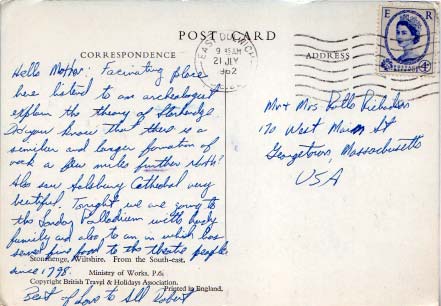 POST CARD
CORRESPONDENCE
ADDRESS
EAST DULWICH
9 15 AM
21 JLY
1962
E R
Hello Mother. Facinating place
here listend to an archeologist
explain the theory of Stonhedge.
Did you know that there is a
similar and larger formation of
rock a few miles further North?
Also saw Salsbury Cathedral very
beutiful. Tonight we are going to
the London Palladium with
family and also to an inn which has
served fine food to the theatre people
since 1798.
Best of Love to All Robert
Mr + Mrs Rollo Richards
170 West Main St
Georgetown, Massachusetts
USA
Stonehenge, Wiltshire. From the South-east.
Ministry of Works. P.6
Copyright British Travel & Holidays Association.
Printed in England.